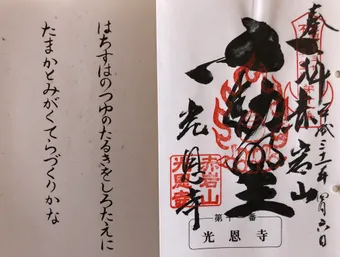 奉拝 赤岩山
不動明王
光恩寺
赤岩山
光恩寺
光恩寺
はちすはのつゆのたるきをしろたえに
たまかとみがくてらづくりかな